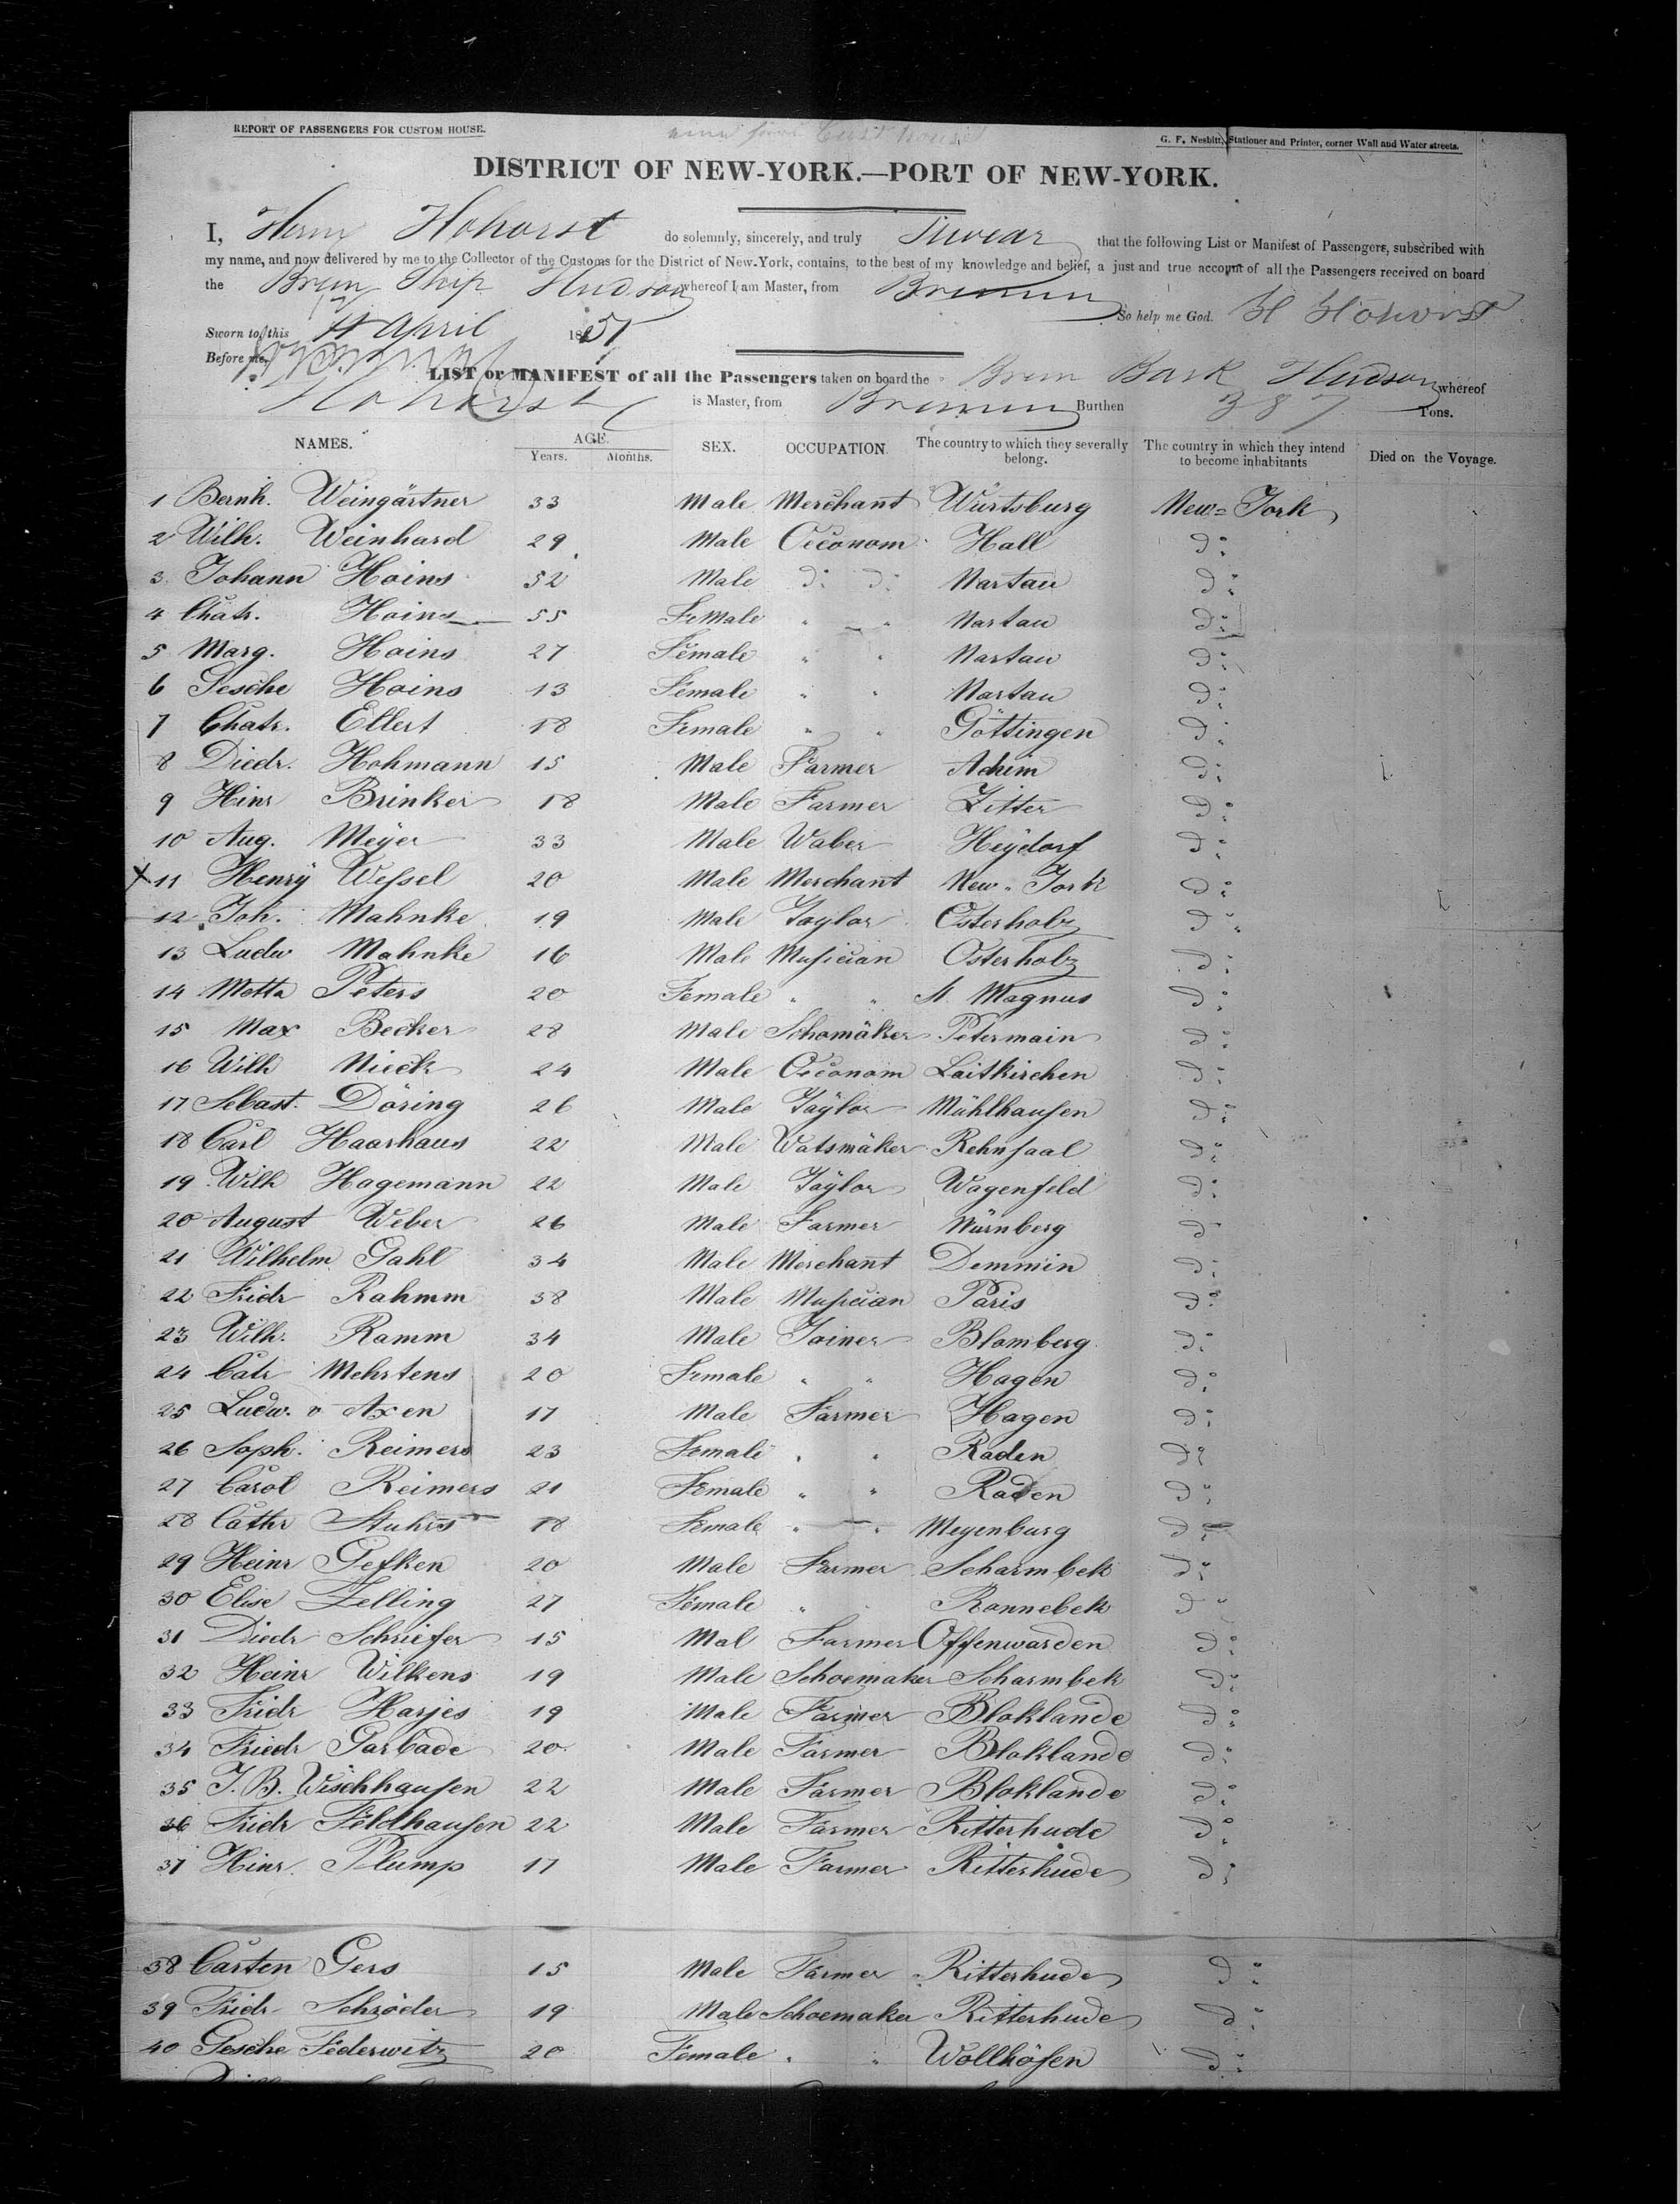 REPORT OF PASSENGERS FOR CUSTOM HOUSE.
G. F. Nesbitt, Stationer and Printer, corner Wall and Water streets.
DISTRICT OF NEW-YORK.—PORT OF NEW-YORK.
I, Herm Hohorst do solemnly, sincerely, and truly Swear that the following List or Manifest of Passengers, subscribed with
my name, and now delivered by me to the Collector of the Customs for the District of New-York, contains, to the best of my knowledge and belief, a just and true account of all the Passengers received on board
the Brem Ship Hudson whereof I am Master, from Bremen So help me God. H Hohorst
Sworn to this April 1851
Before me,
LIST or MANIFEST of all the Passengers taken on board the Brem Bark Hudson whereof
Hohorst is Master, from Bremen Burthen 387 Tons.
NAMES. AGE. Years. Months. SEX. OCCUPATION. The country to which they severally belong. The country in which they intend to become inhabitants Died on the Voyage.
1 Bernh. Weingärtner 33 Male Merchant Würtsburg New=York
2 Wilh. Weinhard 29 Male Oeconom Hall do
3 Johann Hoins 52 Male do do Nartau do
4 Chatr. Hoins 55 FeMale " " Nartau do
5 Marg. Hoins 27 Female " " Nartau do
6 Gesche Hoins 13 Female " " Nartau do
7 Chatr. Ellert 18 Female " " Göttingen do
8 Diedr. Hohmann 15 Male Farmer Achim do
9 Hinr Brinker 18 Male Farmer Zitter do
10 Aug. Meÿer 33 Male Waber Heÿdorf do
X 11 Henrÿ Wessel 20 Male Merchant New-York do
12 Joh. Mahnke 19 Male Taylor Osterholz do
13 Ludw Mahnke 16 Male Musician Osterholz do
14 Metta Peters 20 Female " " St. Magnus do
15 Max Becker 28 Male Schomäker Petermain do
16 Wilh Nieck 24 Male Oeconom Laitkirchen do
17 Sebast. Döring 26 Male Taÿlor Mühlhausen do
18 Carl Haarhaus 22 Male Watsmäker Rehnsaal do
19 Wilh Hagemann 22 Male Taÿlor Wagenfeld do
20 August Weber 26 Male Farmer Nürnberg do
21 Wilhelm Gahl 34 Male Merchant Demmin do
22 Fridr Rahmm 38 Male Musician Paris do
23 Wilh. Ramm 34 Male Joiner Blomberg do
24 Catr Mehrtens 20 Female " " Hagen do
25 Ludw. v Axen 17 Male Farmer Hagen do
26 Soph. Reimers 23 Female " " Raden do
27 Carol Reimers 21 Female " " Raden do
28 Cathr Stuhrs 18 Female " " Meyenburg do
29 Heinr Gefken 20 Male Farmer Scharmbek do
30 Elise Zelling 27 Female " " Ronnebek do
31 Diedr Schriefer 15 Mal Farmer Offenwarden do
32 Heinr Wilkens 19 Male Schoemaker Scharmbek do
33 Fridr Harjes 19 Male Farmer Bloklande do
34 Friedr Garbade 20 Male Farmer Bloklande do
35 J. B. Wischhausen 22 Male Farmer Bloklande do
36 Fridr Feldhausen 22 Male Farmer Ritterhude do
37 Hinr. Plump 17 Male Farmer Ritterhude do
38 Carten Gers 15 Male Farmer Ritterhude do
39 Fridr Schröder 19 Male Schoemaker Ritterhude do
40 Gesche Federwitz 20 Female " " Wollhöfen do